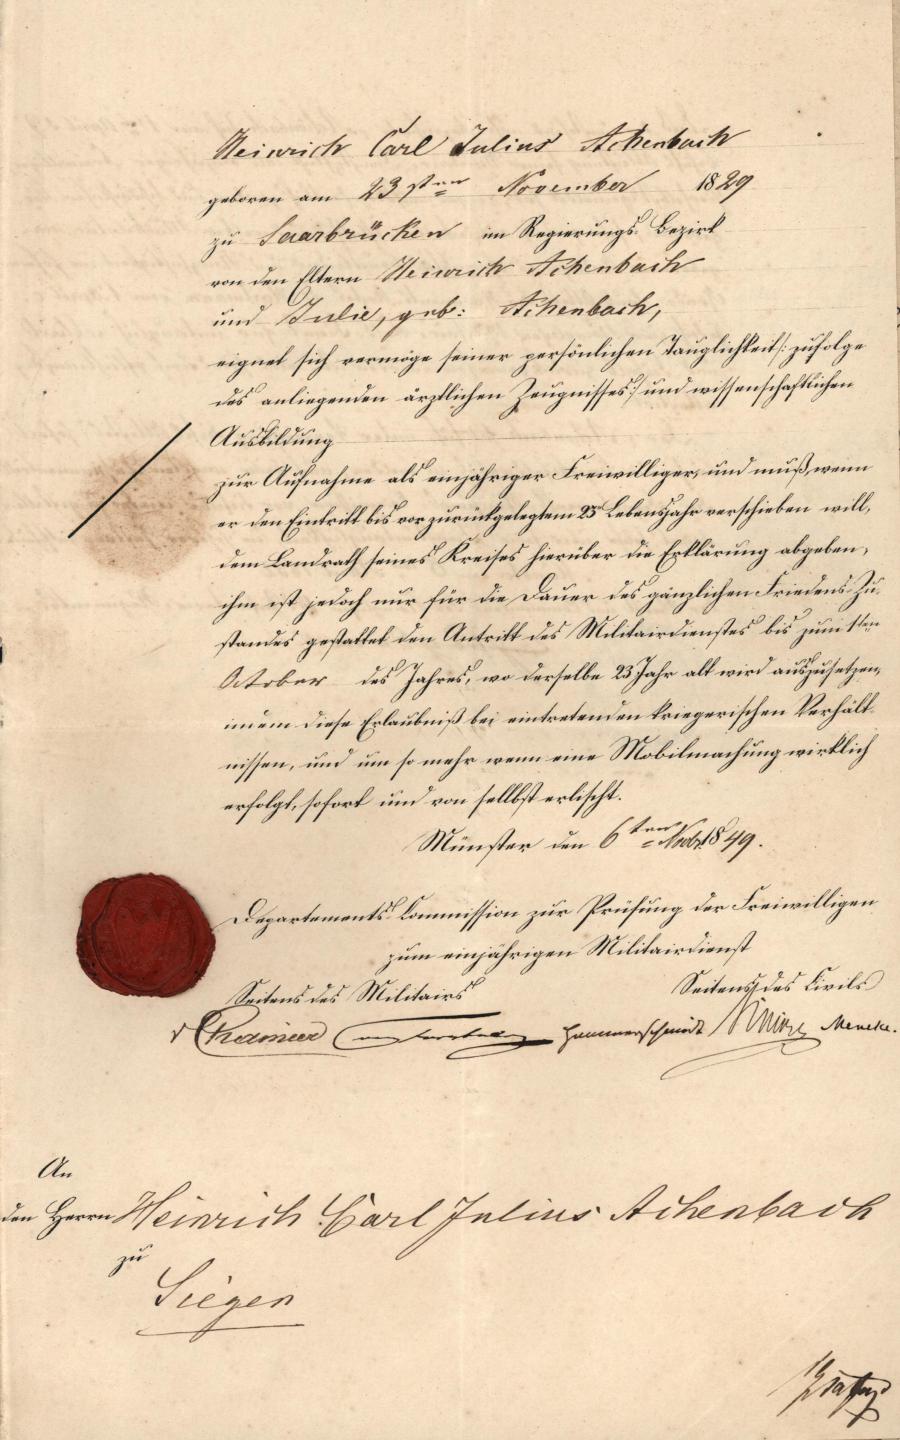 Heinrich Carl Julius Achenbach
geboren am 23sten November 1829
zu Saarbrücken im Regierungs-Bezirk
von den Eltern Heinrich Achenbach
und Julie, geb: Achenbach,
eignet sich vermöge seiner persönlichen Tauglichkeit /: zufolge
des anliegenden ärztlichen Zeugnisses :/ und wissenschaftlichen
Ausbildung
zur Aufnahme als einjähriger Freiwilliger, und muß, wenn
er den Eintritt bis vor zurückgelegtem 23n Lebensjahr verschieben will,
dem Landrath seines Kreises hierüber die Erklärung abgeben,
ihm ist jedoch nur für die Dauer des gänzlichen Friedens-Zu-
standes gestattet den Antritt des Militairdienstes bis zum 1ten
October des Jahres, wo derselbe 23 Jahr alt wird auszusetzen,
indem diese Erlaubniß bei eintretenden kriegerischen Verhält-
nissen, und um so mehr wenn eine Mobilmachung wirklich
erfolgt, sofort und von sellbst erlischt.
Münster den 6ten Novbr 1849.
Departements-Commission zur Prüfung der Freiwilligen
zum einjährigen Militairdienst
Seitens des Militairs Seitens des Civils
Hammerschmidt Meneke.
An
den Herrn Heinrich Carl Julius Achenbach
zu
Siegen